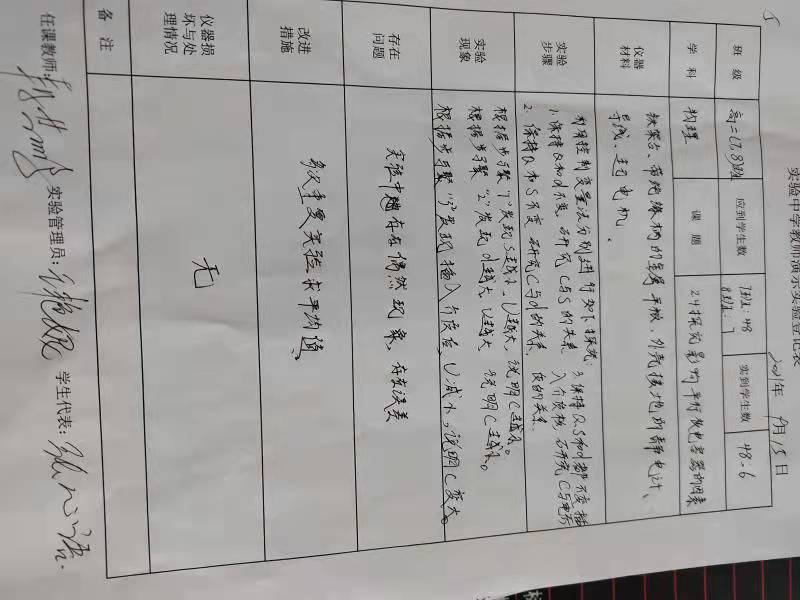 实验中学教师演示实验登记表
2021年 9月15日
班 级 高二(7,8)班 应到学生数 7班:48 8班: 实到学生数 48
学 科 物理 课 题 2.4探究影响平行板电容器的因素
仪器材料 铁架台、带绝缘柄的金属平板、外壳接地的静电计、
导线、起电机、
实验步骤 利用控制变量法分别进行如下探究:
1. 保持Q和d不变 研究C与S的关系
2. 保持Q和S不变 研究C与d的关系
3. 保持Q、S和d都不变 插
入介质板 研究C与电介
质的关系。
实验现象 根据步骤"1"发现S越小、U越大,说明C越小。
根据步骤"2"发现d越大 U越大 说明C越小。
根据步骤"3"发现插入介质后,U减小,说明C变大。
存在问题 实验中存在偶然现象,存在误差
改进措施 多次重复实验求平均值、
仪器损坏与处理情况 无
备 注
任课教师: 实验管理员: 学生代表: